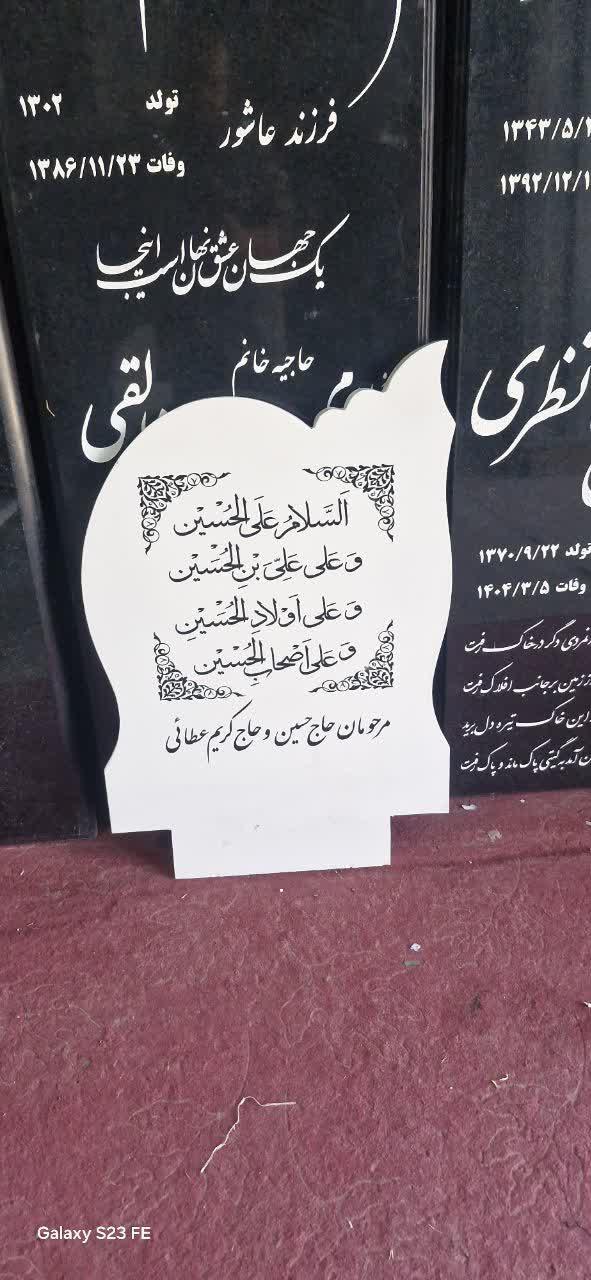 فرزند عاشور
تولد ۱۳۰۲
وفات ۱۳۸۶/۱۱/۲۳
یک جهان عشق نهان است اینجا
حاجیه خانم
اَلسَّلامُ عَلَی الحُسَین
وَ عَلی عَلِیِّ بنِ الحُسَین
وَ عَلی اَولادِ الحُسَینِ
وَ عَلی اَصحابِ الحُسَین
مرحومان حاج حسین و حاج کریم عطائی
۱۳۴۳/۵/۲
۱۳۹۲/۱۲/۱
نظری
تولد ۱۳۷۰/۹/۲۲
وفات ۱۴۰۴/۳/۵
دگر در خاک رفت
از زمین بر جانب افلاک رفت
این خاک تیره دل برید
آمد به گیتی پاک ماند و پاک رفت
Galaxy S23 FE